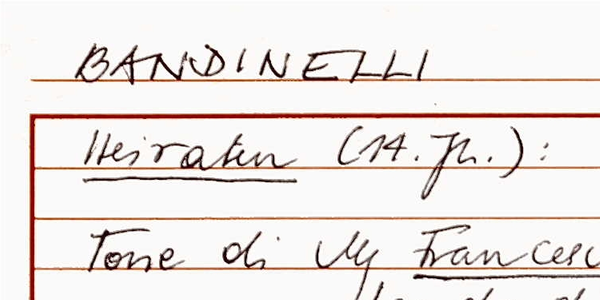 BANDINELLI
Heiraten (14. Jh.):
Tone di Mg Francesc